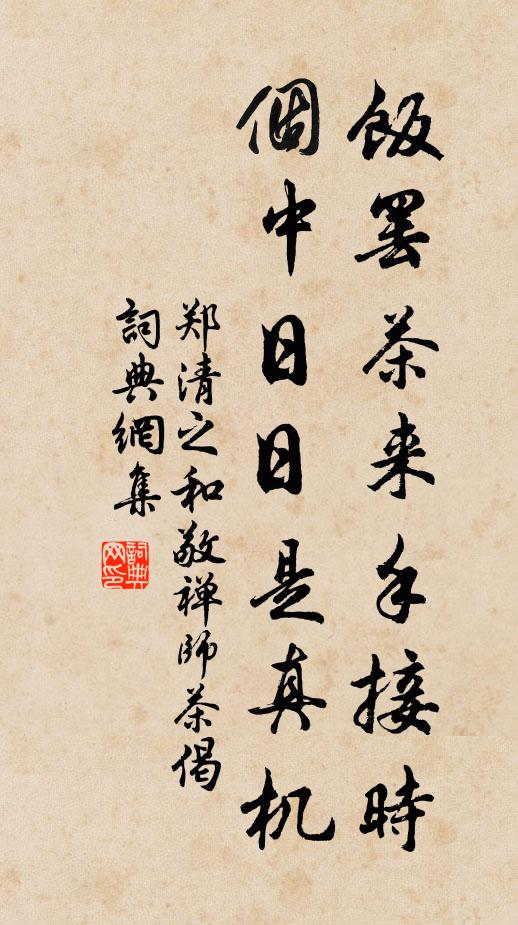 飯罢茶来手接時
個中日日是真机
郑清之和敬禅師茶偈
詞典網集
詞典
网印